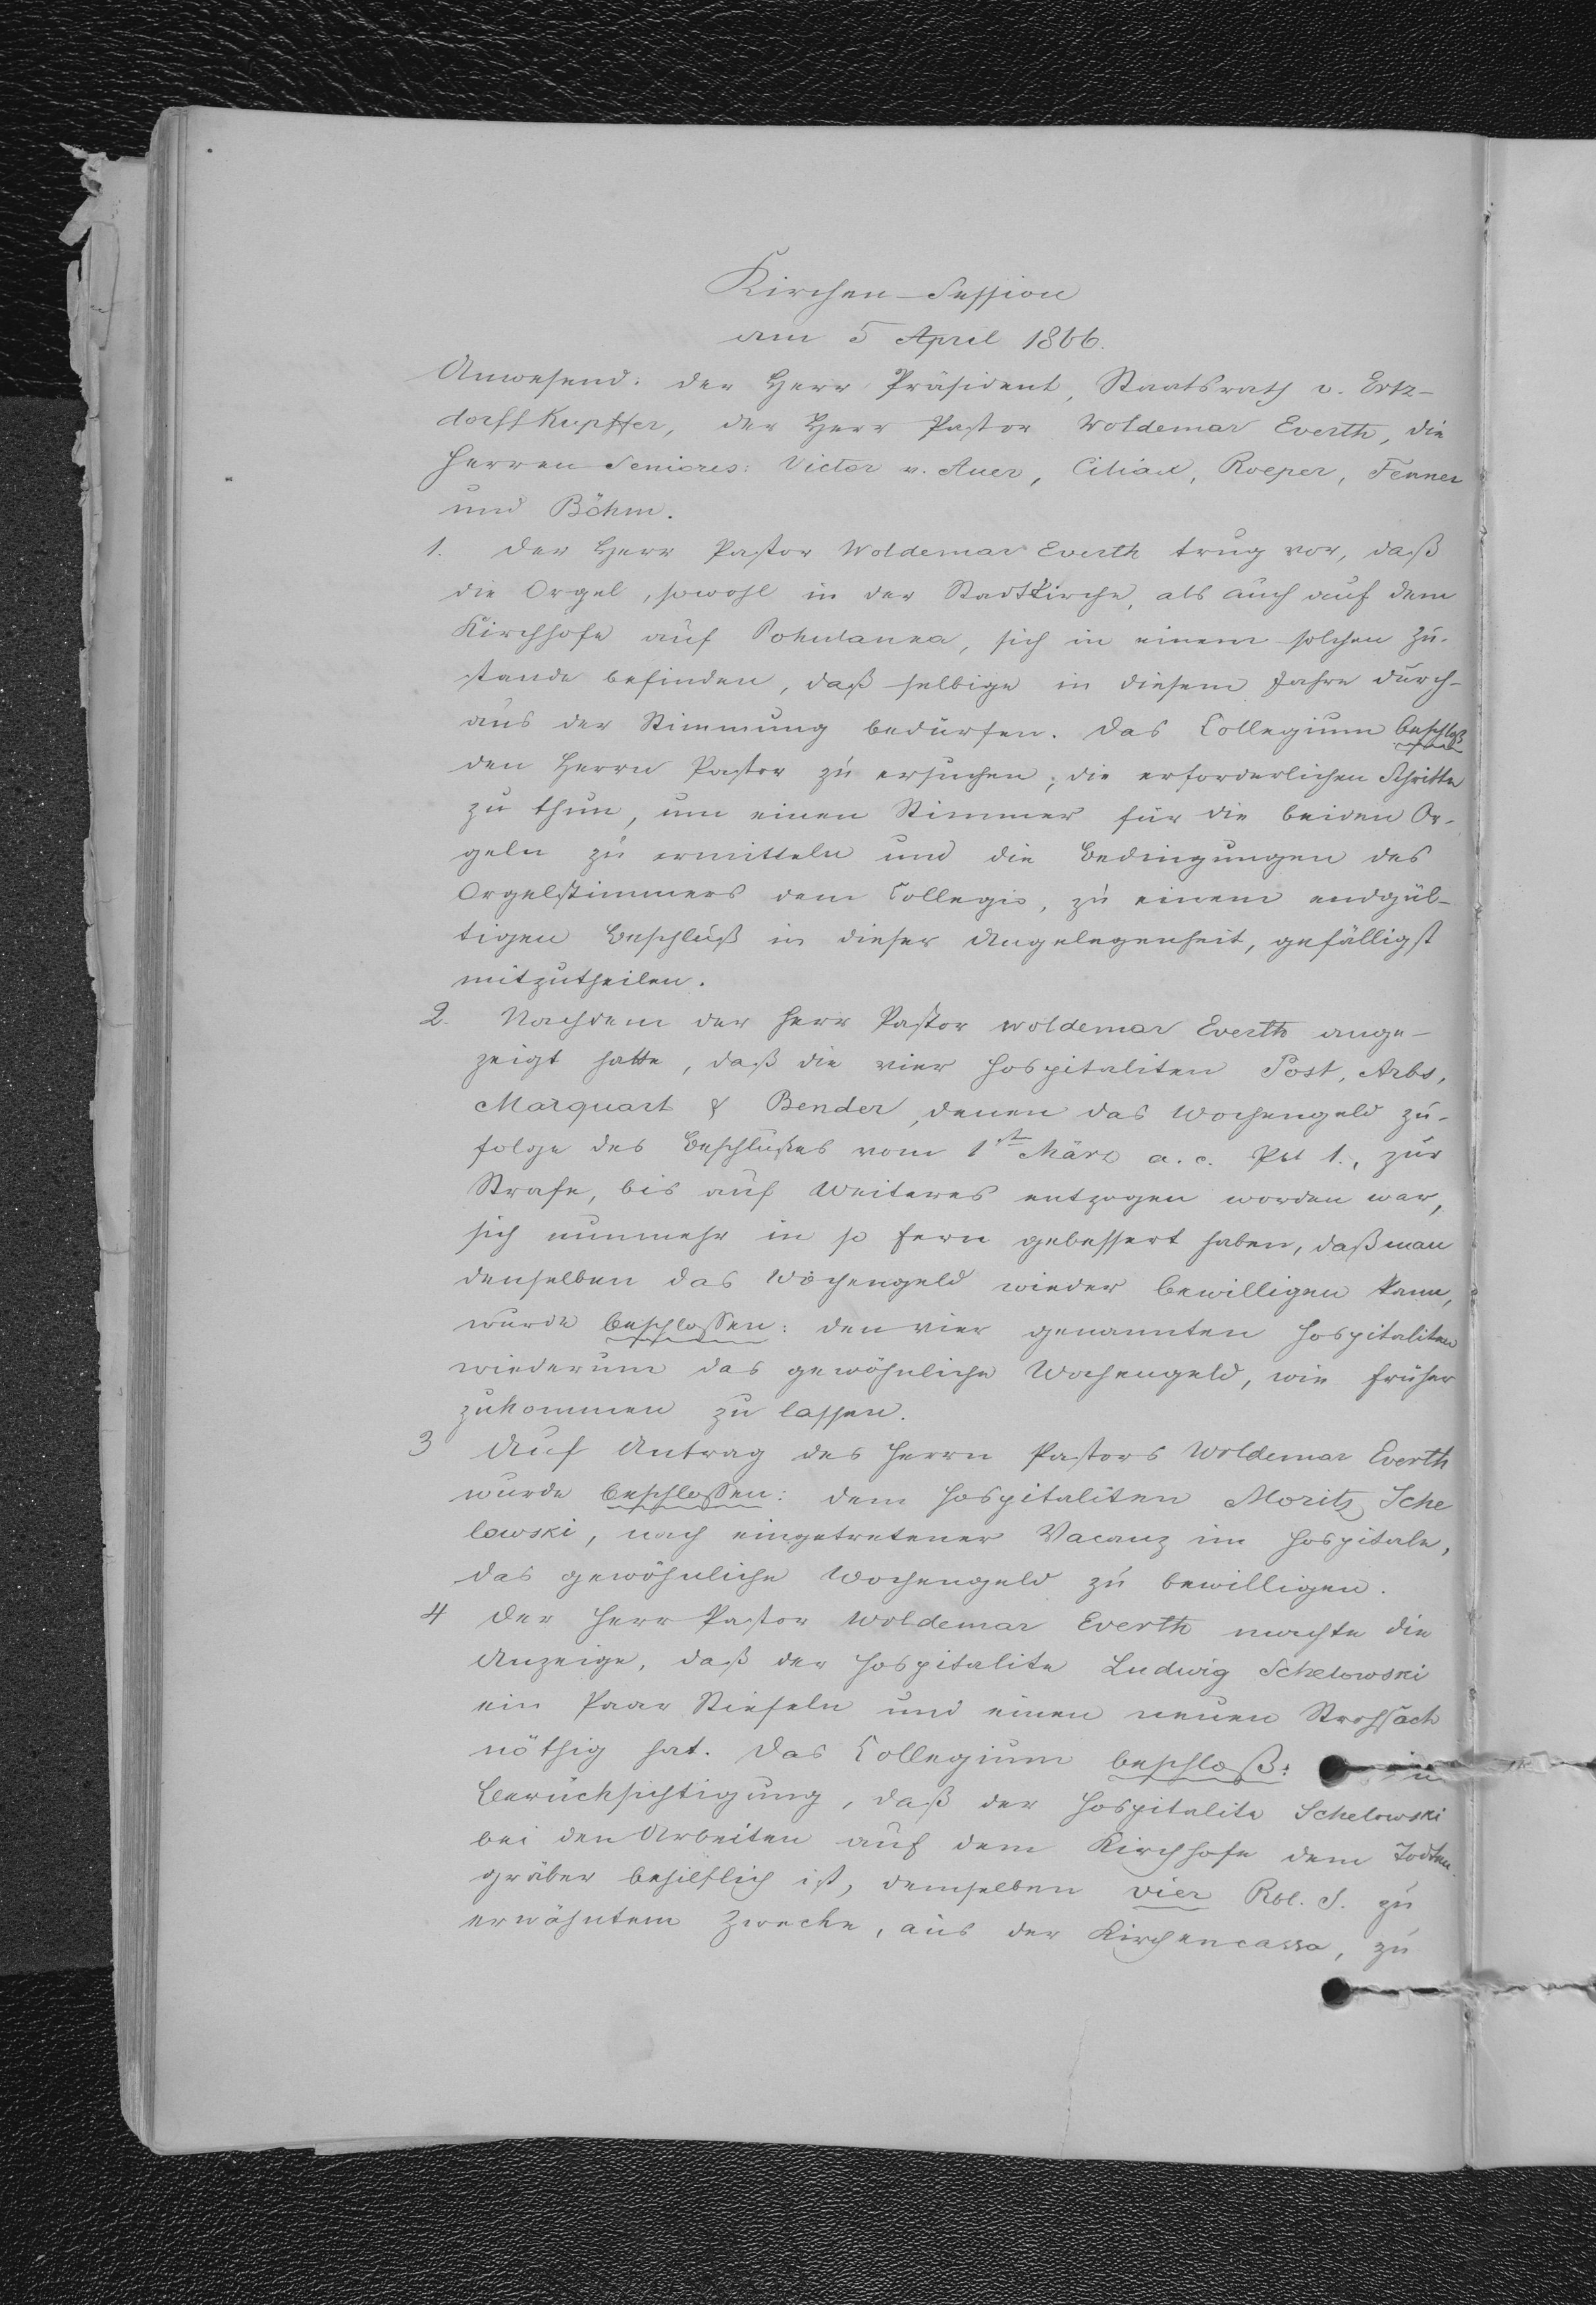 Kirchen-Session
am 5 April 1866.
Anwesend: der Herr Präsident, Staatsrath v. Ertz-
dorff Kupffer, der Herr Pastor Woldemar Everth, die
Herren Seniores: Victor v. Auer, Ciliax, Roeper, Fenner
und Böhm.
1. Der Herr Pastor Woldemar Everth trug vor, daß
die Orgel, sowohl in der Stadtkirche, als auch auf dem
Kirchhofe auf Pohulanka, sich in einem solchen Zu-
stande befinden, daß selbige in diesem Jahre durch-
aus der Stimmung bedürfen. Das Collegium beschloß
den Herrn Pastor zu ersuchen, die erforderlichen Schritte
zu thun, um einen Stimmer für die beiden Or-
geln zu ermitteln und die Bedingungen des
Orgelstimmers dem Collegio, zu einem endgül-
tigen Beschluß in dieser Angelegenheit, gefälligst
mitzutheilen.
2. Nachdem der Herr Pastor Woldemar Everth ange-
zeigt hatte, daß die vier Hospitaliten Post, Arbs,
Marquart & Bender, denen das Wochengeld zu-
folge des Beschlußes vom 1sten März a. c. Pkt 1., zur
Strafe, bis auf Weiteres entzogen worden war,
sich nunmehr in so fern gebessert haben, daß man
denselben das Wochengeld wieder bewilligen kann,
wurde beschlossen: den vier genannten Hospitaliten
wiederum das gewöhnliche Wochengeld, wie früher
zukommen zu lassen.
3 Auf Antrag des Herrn Pastors Woldemar Everth
wurde beschlossen: dem Hospitaliten Moritz Sche
lowski, nach eingetretener Vacanz im Hospitale,
das gewöhnliche Wochengeld zu bewilligen.
4 Der Herr Pastor Woldemar Everth machte die
Anzeige, daß der Hospitalite Ludwig Schelowski
ein Paar Stiefeln und einen neuen Strohsack
nöthig hat. Das Collegium beschloß: in
Berücksichtigung, daß der Hospitalite Schelowski
bei den Arbeiten auf dem Kirchhofe dem Todten-
gräber behilflich ist, demselben vier Rbl. S. zu
erwähntem Zwecke, aus der Kirchencassa, zu